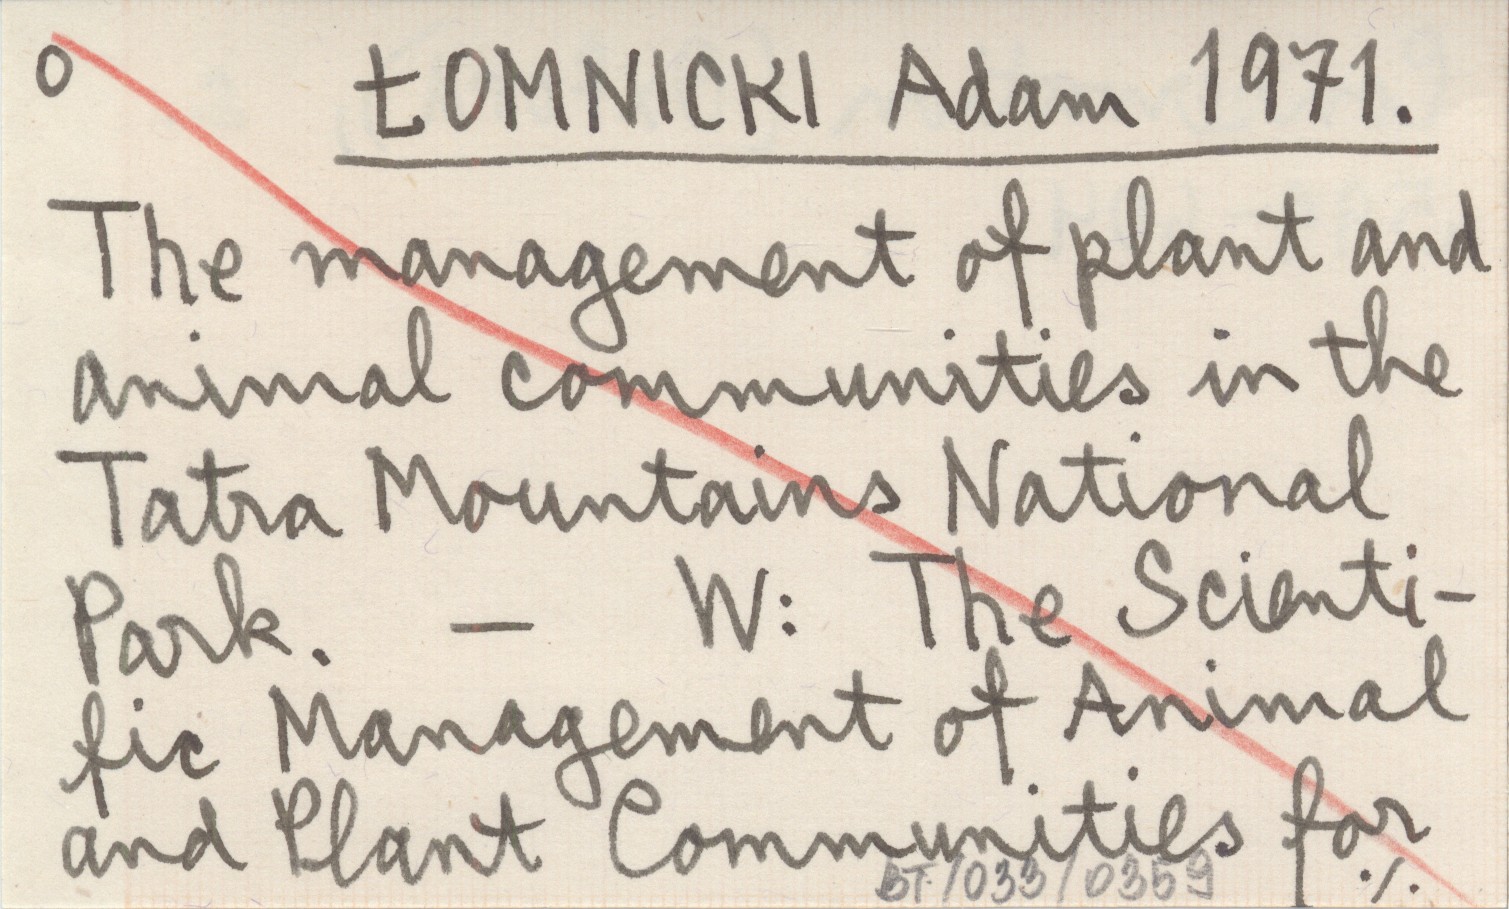 o ŁOMNICKI Adam 1971.
The management of plant and
animal communities in the
Tatra Mountains National
Park. — W: The Scienti-
fic Management of Animal
and Plant Communities for
./.
BT/033/0359